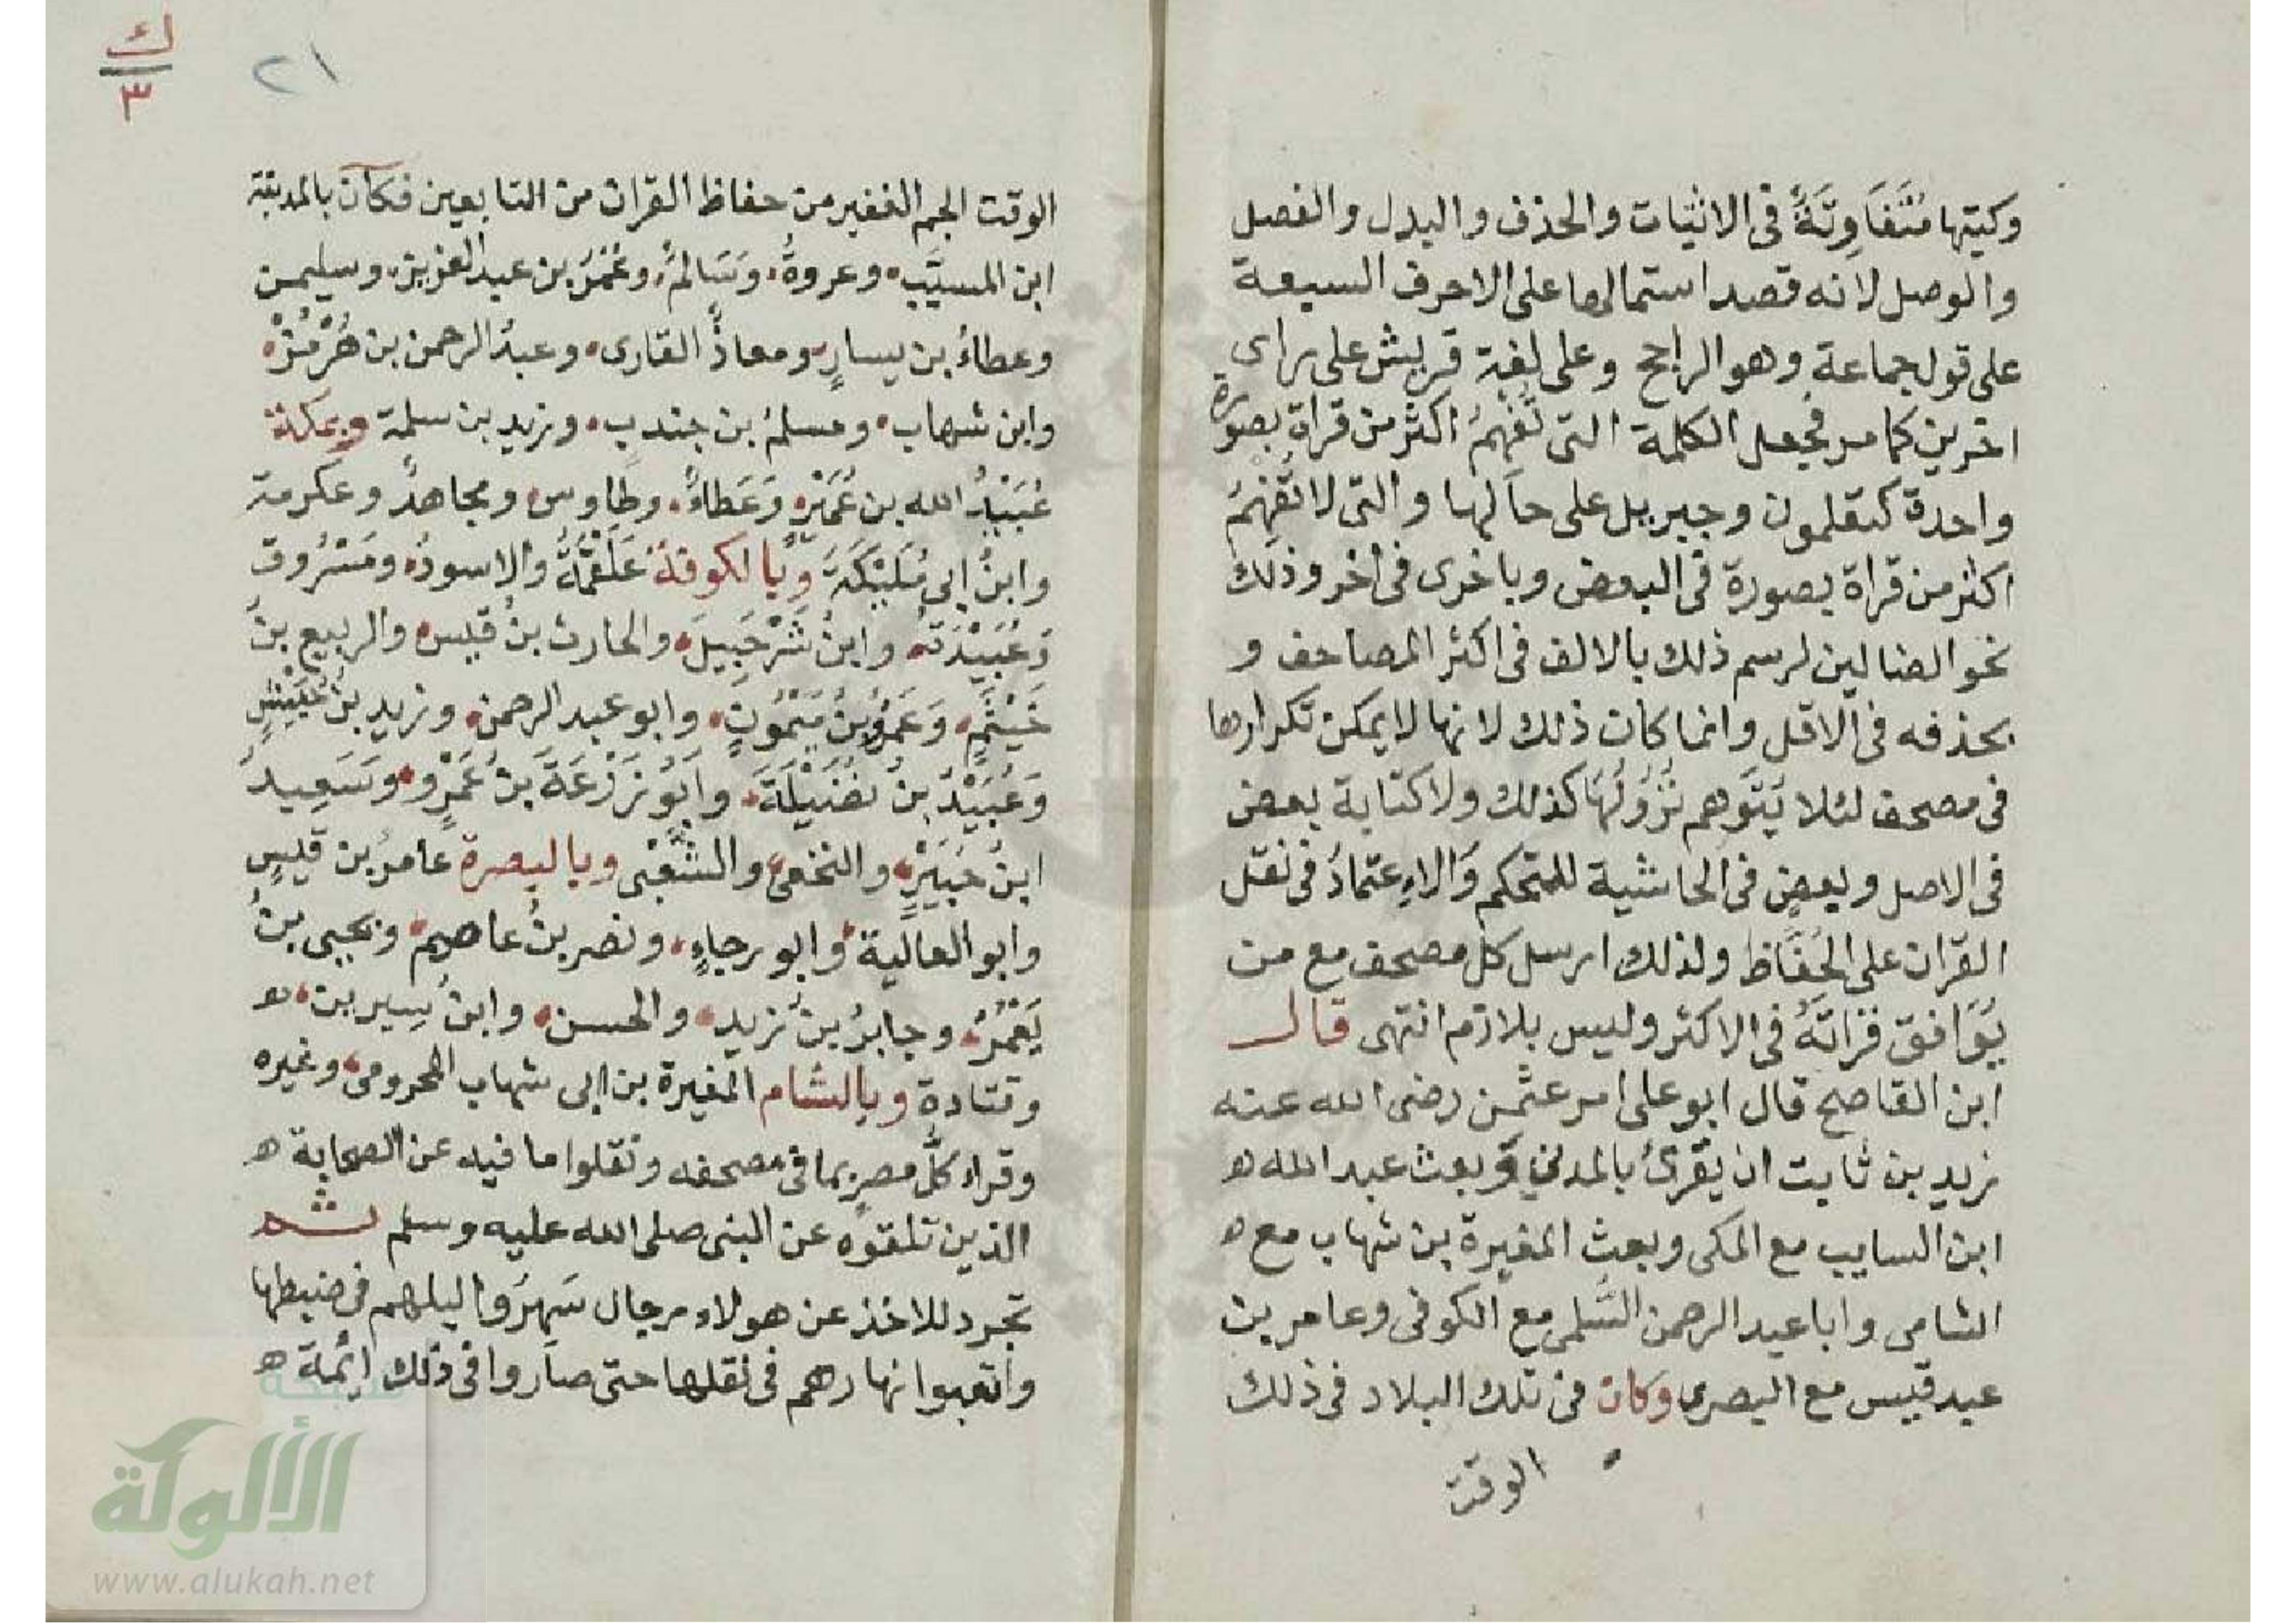 وكتبها مُتَفَاوِتَةً فى الاثبات والحذف والبدل والفصل
والوصل لانه قصد استمالها على الاحرف السبعة
على قول جماعة وهو الراجح وعلى لغة قريش على راى
اخرين كما مر فجعل الكلمة التى تُفْهِمُ اكثر من قراة بصورة
واحدة كتعلمون وجبريل على حالها والتى لا تُفْهِمُ
اكثر من قراة بصورة فى البعض وباخرى فى اخر وذلك
نحو الضالين لرسم ذلك بالالف فى اكثر المصاحف و
بحذفه فى الاقل وانما كان ذلك لانها لا يمكن تكرارها
فى مصحف لئلا يَتَوهم نُزُولُهَا كذلك ولا كتابة بعض
فى الاصل وبعض فى الحاشية للتحكم وَالاِعتمادُ فى نقل
القران على الحُفَّاظ ولذلك ارسل كل مصحف مع من
يُوَافق قراتَهُ فى الاكثر وليس بلازم انتهى قال
ابن القاصح قال ابو على امر عثمن رضى الله عنه
زيد بن ثابت ان يُقرئ بالمدنى وبعث عبد الله ه
ابن السايب مع المكى وبعث المغيرة بن شهاب مع ه
الشامى وابا عبد الرحمن السُّلمى مع الكوفى وعامر بن
عبد قيس مع البصرى وكان فى تلك البلاد فى ذلك
الوقت
ك
٣
٢١
الوقت الجم الغفير من حفاظ القران من التابعين فكان بالمدينة
ابن المسيَّب وعروةُ وَسَالمٌ وعُمَرُ بن عبد العزيز وسليمن
وعطاءُ بن يسارٍ ومعاذٌ القارى وعبدُ الرحمن بن هُرْمُزْ
وابن شهاب ومسلمُ بن جندب وزيد بن سلمة وبمكة
عُبَيْدُ الله بن عُمَيْرٍ وَعَطاءٌ وطاوس ومجاهدٌ وعكرمة
وابنُ ابى مُلَيْكَةَ وبالكوفة عَلْقَمَةُ والاسودُ ومَسْرُوق
وَعُبَيْدَةُ وابنُ شَرْحَبِيلَ والحارث بنُ قيس والربيع بنُ
خَيْثَمٍ وَعَمْرُو بنُ مَيْمُونٍ وابو عبد الرحمن وزيد بنُ حُبَيْشٍ
وَعُبَيْدُ بنُ نُضَيْلَةَ وَابُو زَرْعَةَ بنُ عَمْرٍو وَسَعِيدُ
ابنُ جُبَيْرٍ والنخعى والشَّعْبى وبالبصرة عامرُ بن قيسٍ
وابو العالية وابو رجاءٍ ونصر بنُ عاصم ويحيى بنُ
يَعْمُرَ وجابرُ بنُ زيد والحسن وابنُ سِيرين ه
وقتادة وبالشام المغيرة بن ابى شهاب المحرومى وغيره
وقراء كلُّ مصرٍ بما فى مصحفه ونقلوا ما فيه عن الصحابة ه
الذين تلقوه عن النبى صلى الله عليه وسلم ثم
تجرد للاخذ عن هولاء رجال سَهِرُوا ليلهم فى ضبطها
واتعبوا نهارهم فى نقلها حتى صاروا فى ذلك ايُمة ه
الألوكة
www.alukah.net